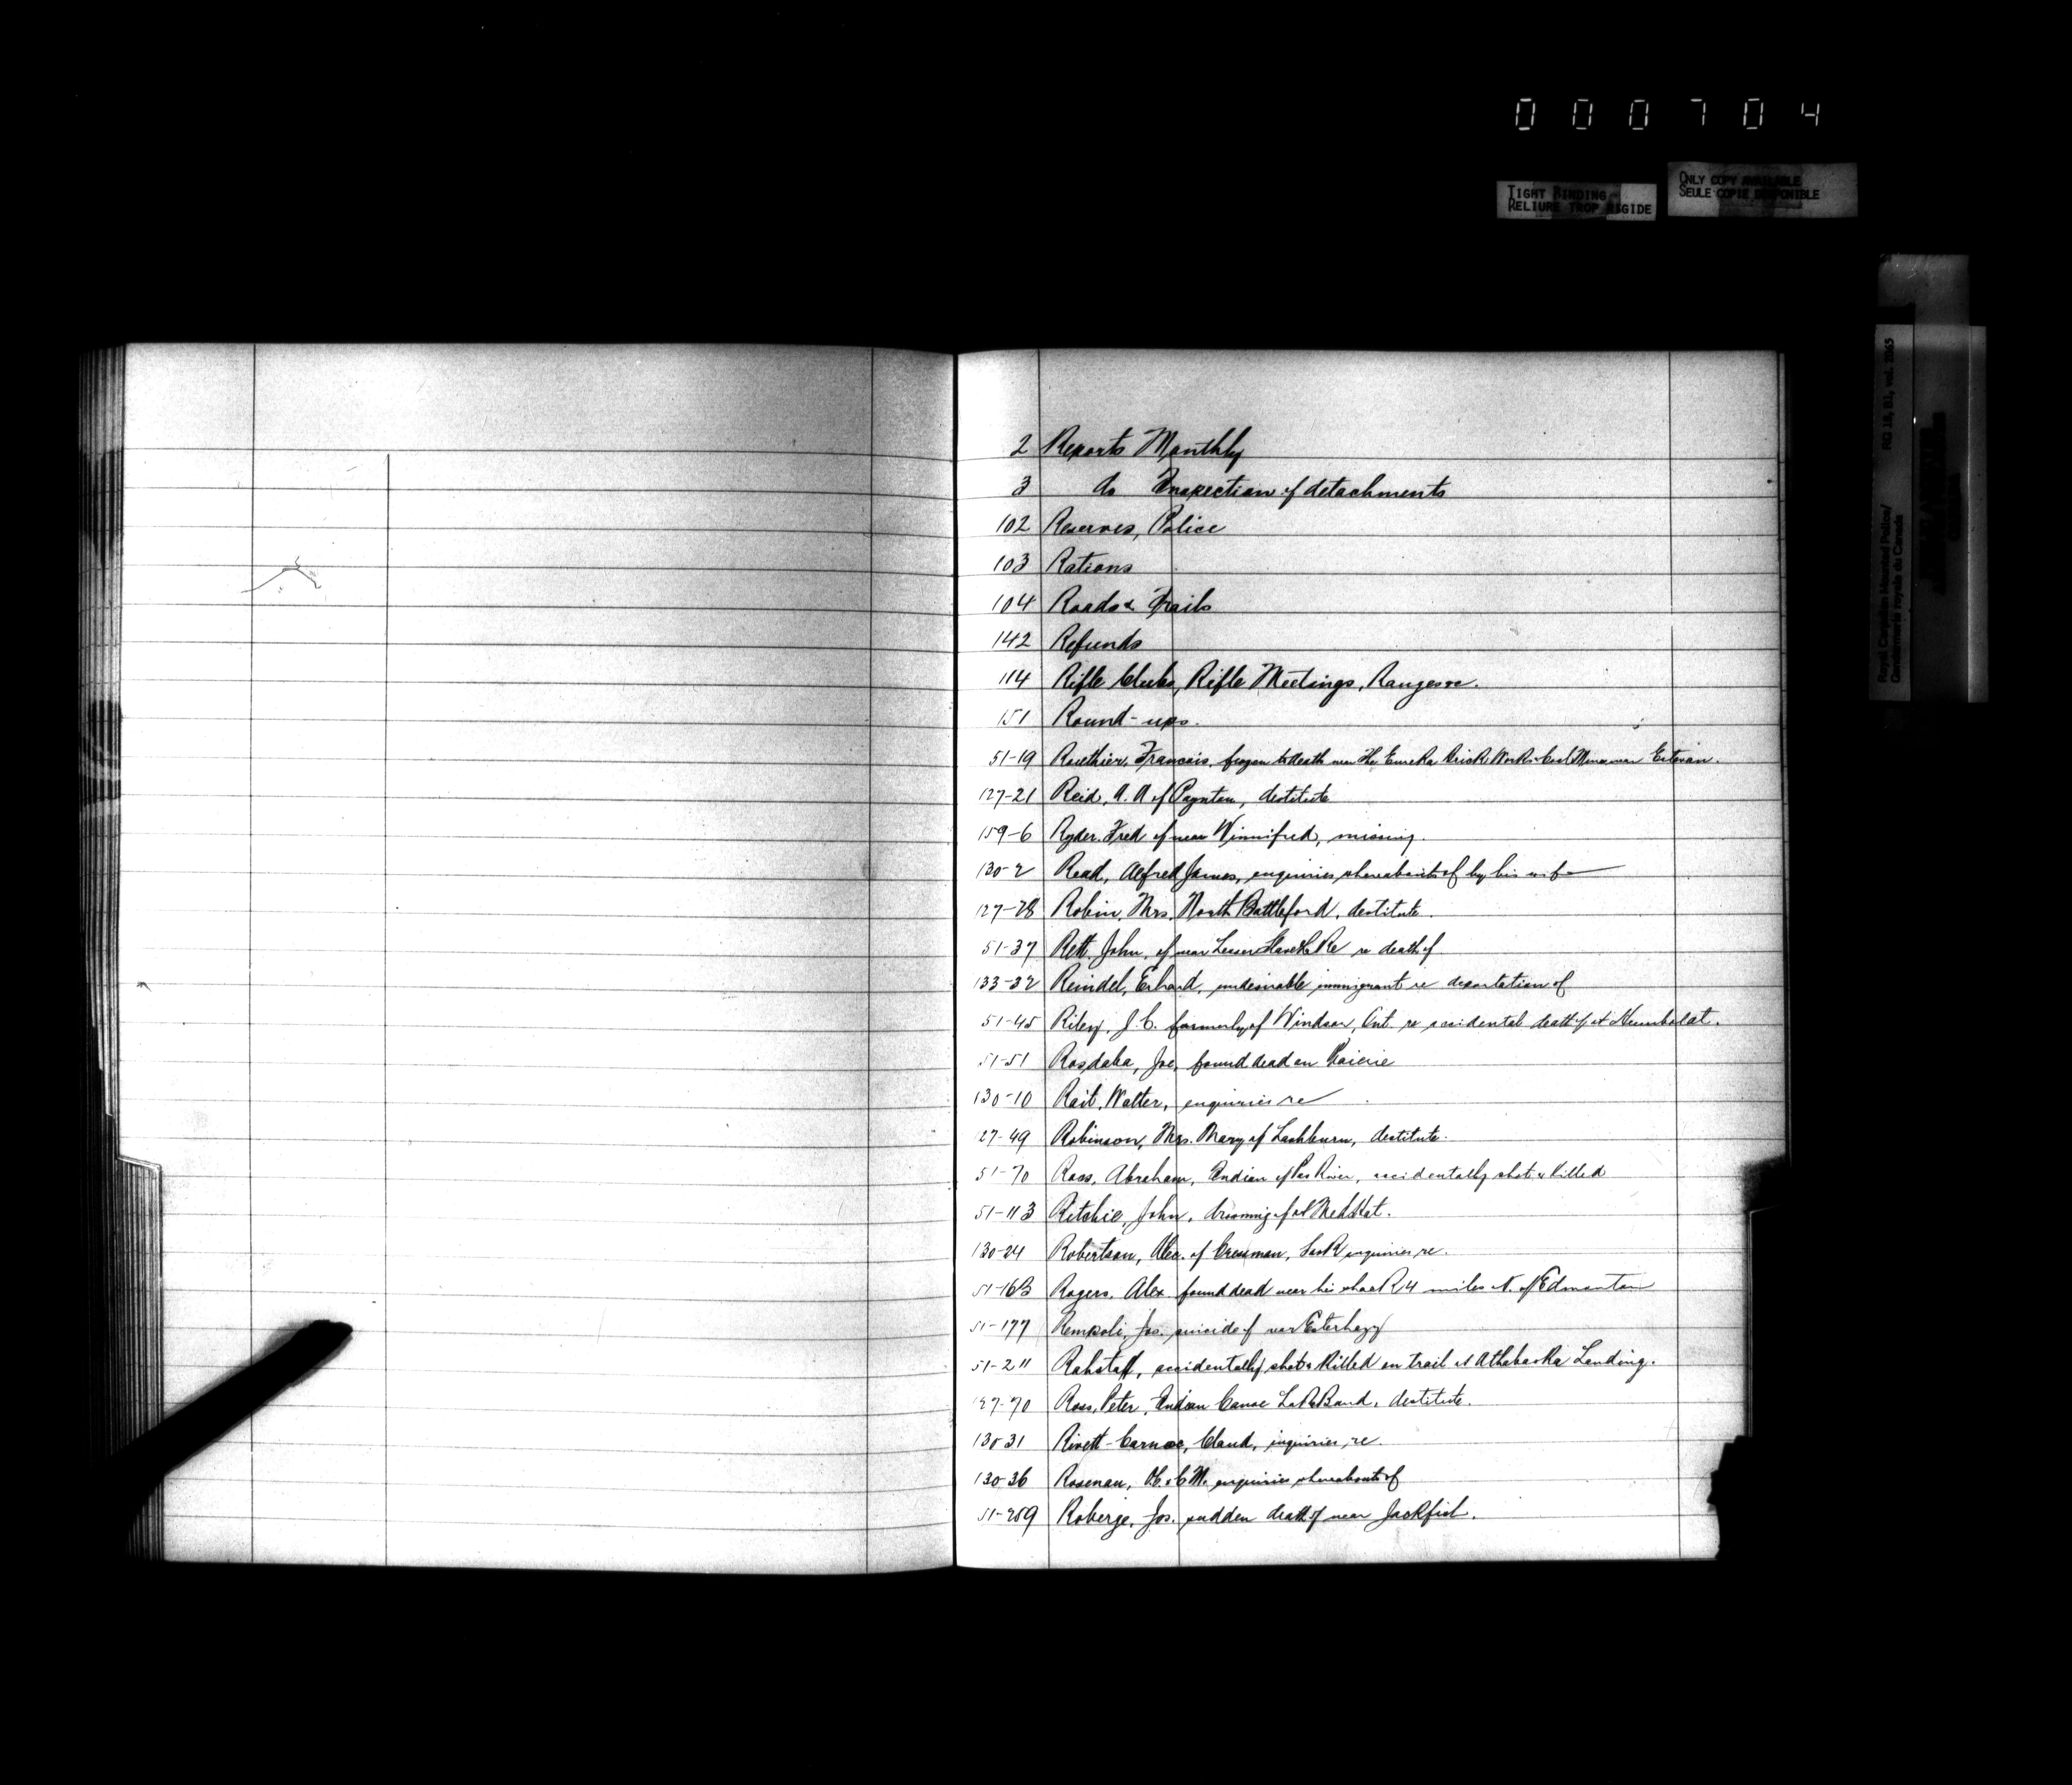 000704
TIGHT BINDING
RELIURE TROP RIGIDE
ONLY COPY AVAILABLE
SEULE COPIE DISPONIBLE
RG 18, B1, vol. 2365
Royal Canadian Mounted Police/
Gendarmerie royale du Canada
2 Reports Monthly
3 do Inspection of detachments
102 Reserves, Police
103 Rations
104 Roads & Trails
142 Refunds
114 Rifle Clubs, Rifle Meetings, Ranges re.
151 Round-ups.
51-19 Routhier, Francois, frozen to death near the Eureka Brick Works Coal Mine near Estevan.
127-21 Reid, A. A of Paynton, destitute
159-6 Ryder. Fred of near Winnifred, missing.
130-2 Read, Alfred James, enquiries whereabouts of by his wife
127-28 Robin, Mrs. North Battleford, destitute.
51-37 Rett, John, of near Lesser Slave Lake re death of
133-32 Reindel, Erhard, undesirable immigrant re deportation of
51-45 Riley, J. C. formerly of Windsor, Ont. re accidental death of at Humboldt.
51-51 Rosdaba, Joe, found dead on Prairie
130-10 Rait, Walter, enquiries re
27-49 Robinson, Mrs. Mary of Lashburn, destitute.
51-70 Ross, Abraham, Indian of Pas River, accidentally shot & killed
51-113 Ritchie, John, drowning of at Med Hat.
130-24 Robertson, Alec. of Cressman, Sask enquiries re.
51-163 Rogers, Alex found dead near his shack 4 miles N. of Edmonton
51-177 Rempoli, Jos. suicide of near Esterhazy
51-211 Rahstaff, accidentally shot & killed on trail at Athabaska Landing.
127-70 Ross, Peter, Indian Canoe Lake Band, destitute.
130-31 Rivett-Carnac, Claud, inquiries, re.
130-36 Rosenau, & C. W. enquiries whereabouts of
51-259 Roberge, Jos. sudden death of near Jackfish.